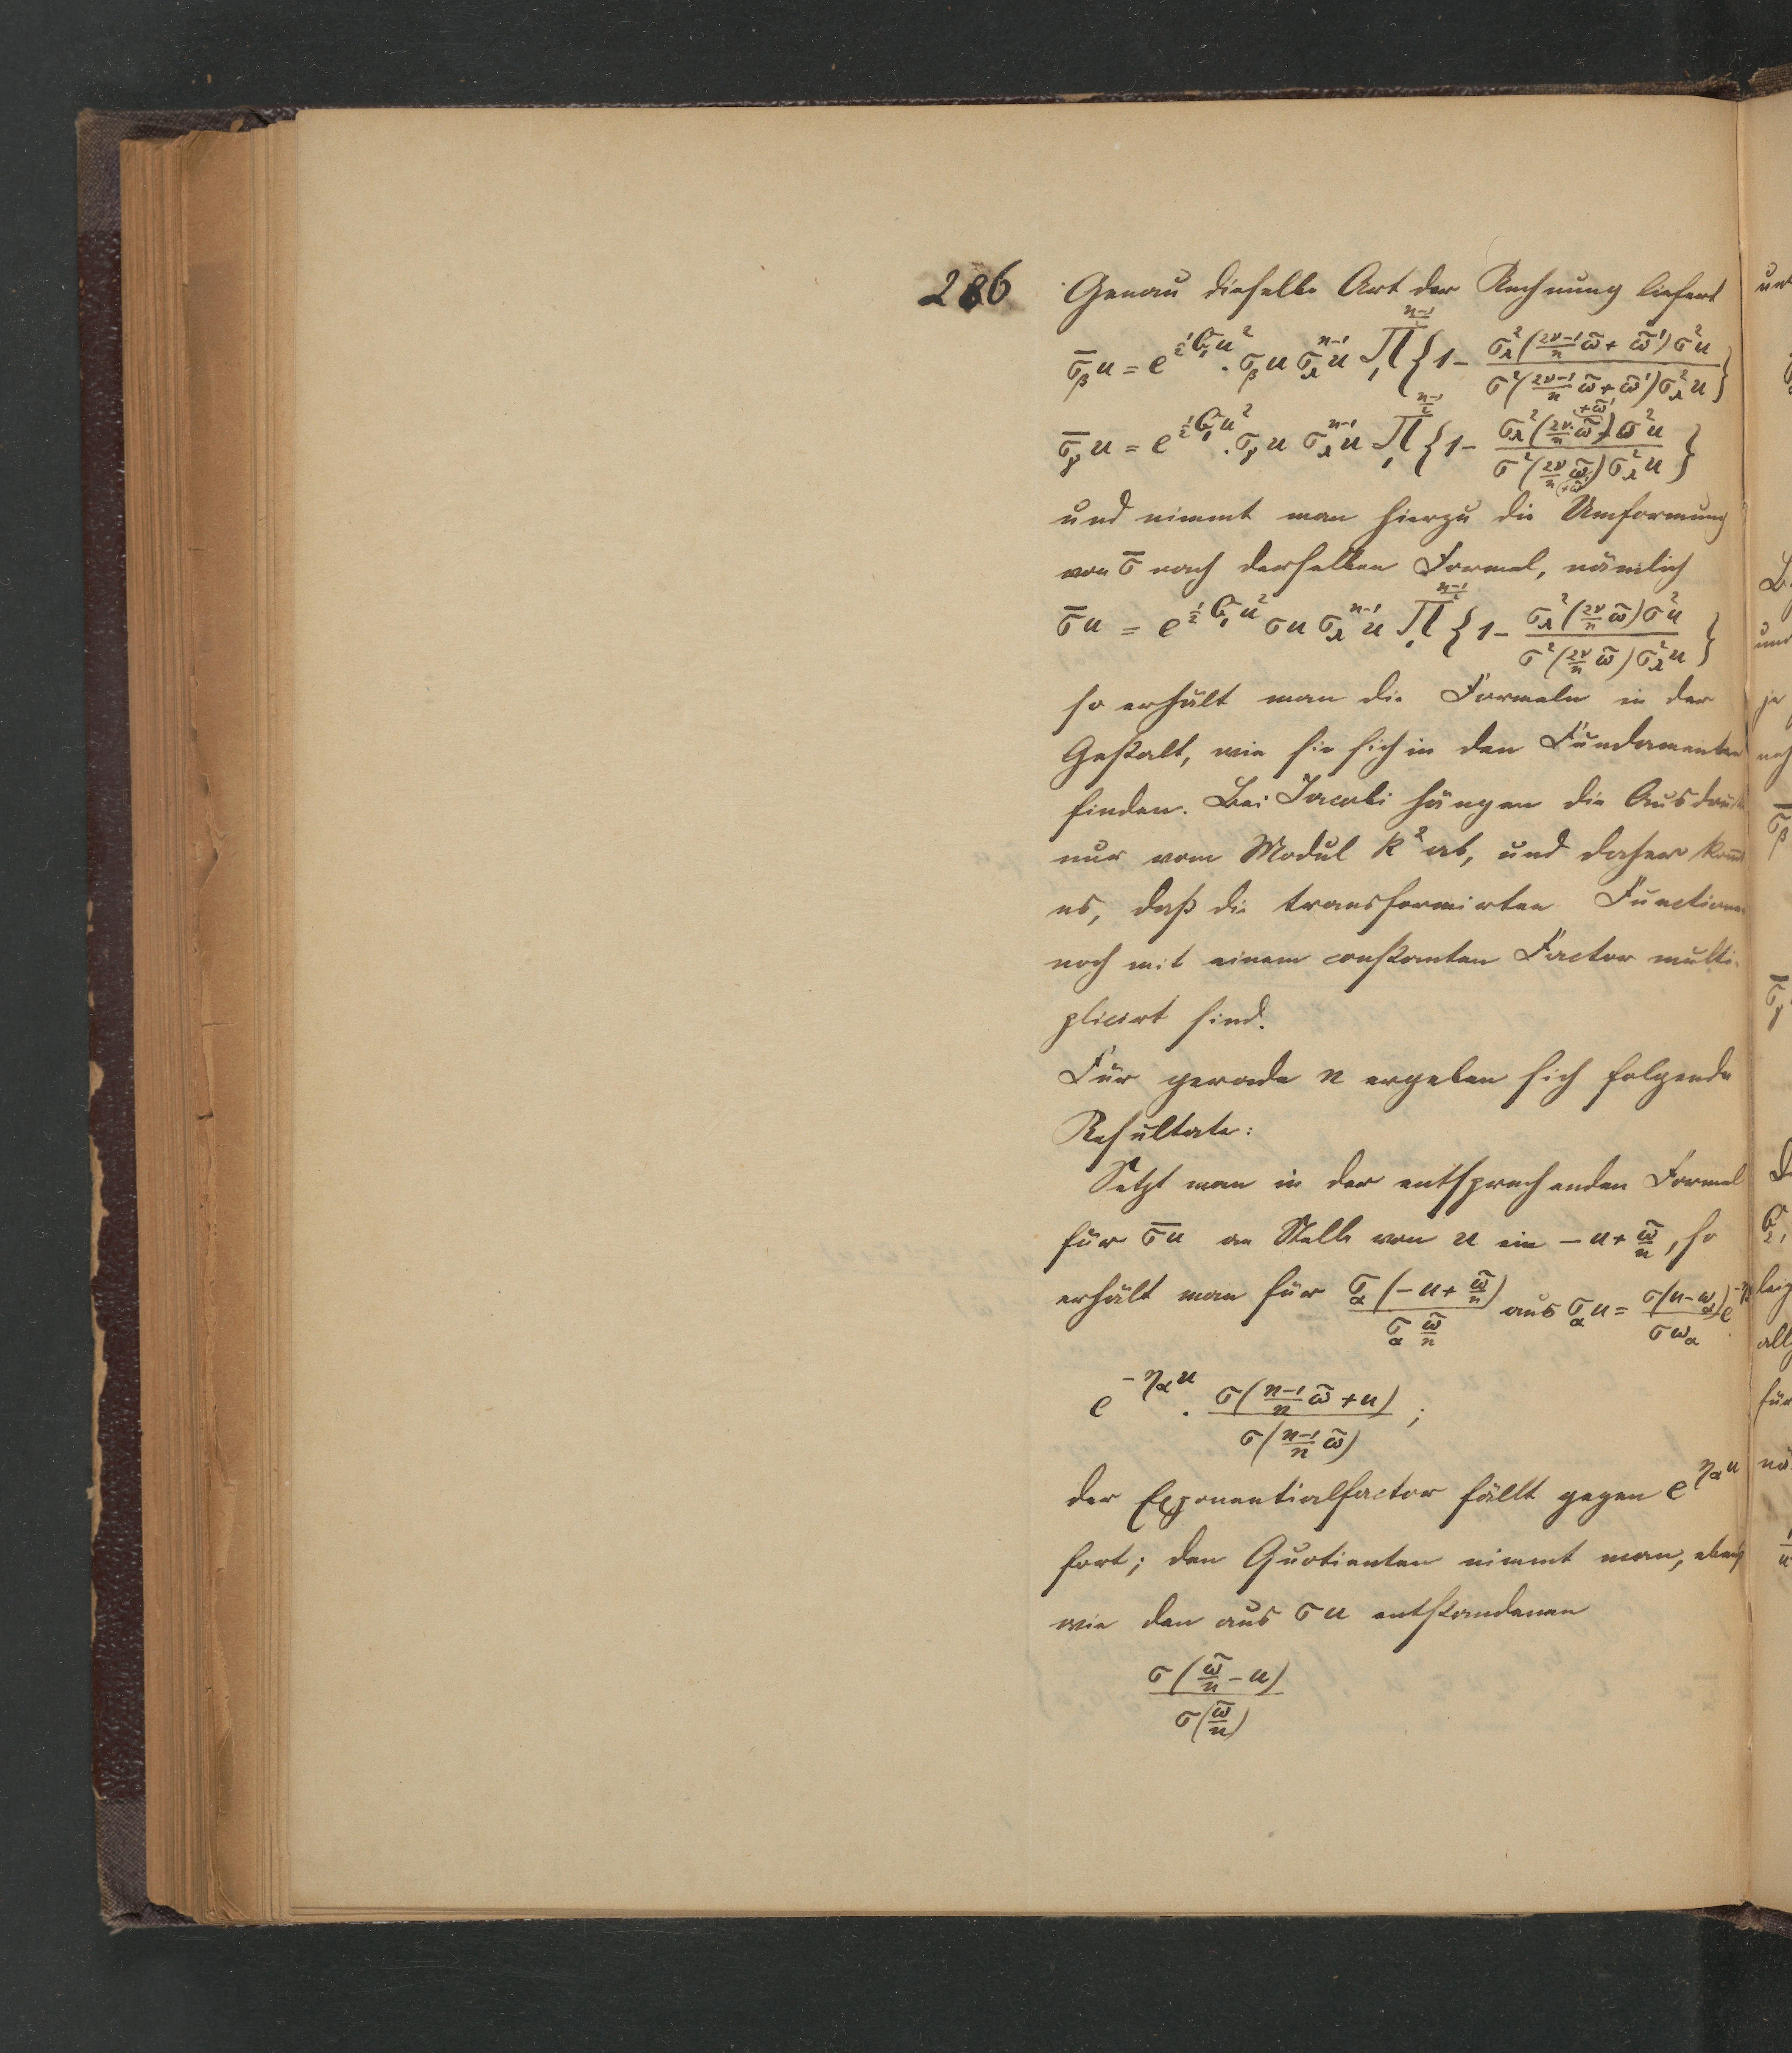 286
Genau dieselbe Art der Rechnung liefert
σ̄_β u = e^{½ G₁ u²} · σ_β u σ_λ^{n-1} u ∏_1^{(n-1)/2} {1 - σ_λ²((2ν-1)/n ω̃ + ω̃') σ² u / σ²((2ν-1)/n ω̃ + ω̃') σ_λ² u}
σ̄_γ u = e^{½ G₁ u²} · σ_γ u σ_λ^{n-1} u ∏_1^{(n-1)/2} {1 - σ_λ²(2ν/n ω̃ + ω̃') σ² u / σ²(2ν/n ω̃ + ω̃') σ_λ² u}
und nimmt man hierzu die Umformung
von σ̄ nach derselben Formel, nämlich
σ̄ u = e^{½ G₁ u²} σ u σ_λ^{n-1} u ∏_1^{(n-1)/2} {1 - σ_λ²(2ν/n ω̃) σ² u / σ²(2ν/n ω̃) σ_λ² u}
so erhält man die Formeln in der
Gestalt, wie sie sich in den Fundamenten
finden. Bei Jacobi hängen die Ausdrück
nur vom Modul k² ab, und daher kom̄t
es, daß die transformirten Functionen
noch mit einem constanten Factor multi-
plicirt sind.
Für gerade n ergeben sich folgende
Resultate:
Setzt man in der entsprechenden Formel
für σ̄ u an Stelle von u ein - u + ω̃/n, so
erhält man für σ_α(-u + ω̃/n) / σ_α ω̃/n aus σ_α u = σ(u - ω_α) / σ ω_α e^{-η
e^{-η_α u} · σ((n-1)/n ω̃ + u) / σ((n-1)/n ω̃) ;
der Exponentialfactor fällt gegen e^{η_α u}
fort; den Quotienten nimmt man, ebenso
wie den aus σ u entstandenen
σ(ω̃/n - u) / σ(ω̃/n)